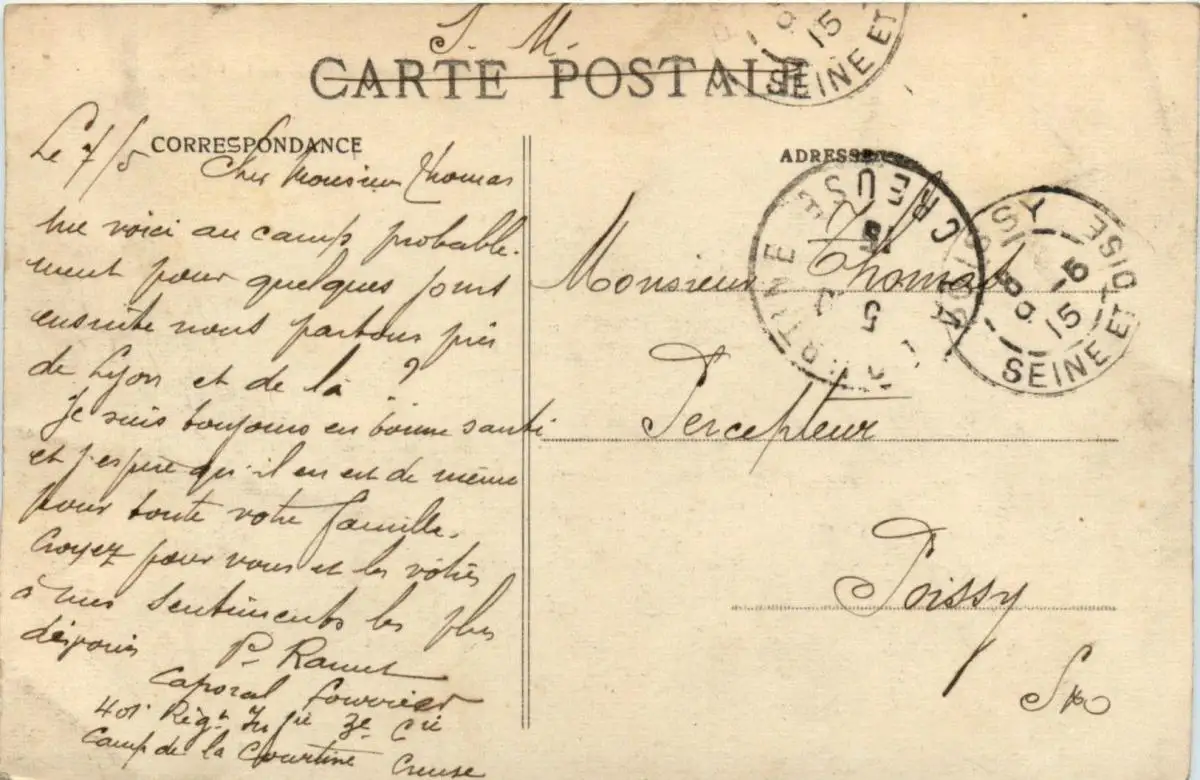 S. M.
CARTE POSTALE
CORRESPONDANCE
Le 7/5
Cher Monsieur Thomas
me voici au camp probable-
ment pour quelques jours
ensuite nous partons près
de Lyon et de là ?
Je suis toujours en bonne santé
et j'espère qu'il en est de même
pour toute votre famille.
Croyez pour vous et les vôtres
à mes sentiments les plus
dévoués
P. Ramet
Caporal fourrier
401e Régt Infie 3e Cie
Camp de la Courtine Creuse
ADRESSE
Monsieur Thomas
Percepteur
Poissy
S&O
15
SEINE ET
CREUSE
15
5
POISSY
8 -5
15
SEINE ET OISE